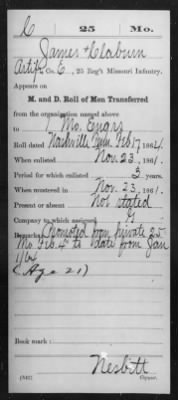 C 25 Mo.
James H Claburn
Artif. Co. E, 25 Reg't Missouri Infantry.
Appears on
M. and D. Roll of Men Transferred
from the organization above to
1 Mo. Engrs
Roll dated Nashville Tenn Feb 17 1864.
When enlisted Nov. 23, 1861.
Period for which enlisted 3 years.
When mustered in Nov. 23, 1861.
Present or absent Not stated
Company to which assigned G
Remarks: Promoted from private 25
Mo. Feb 4" to date from Jan
1/64
(Age 21)
Book mark:
Nesbitt
(842) Copyist.